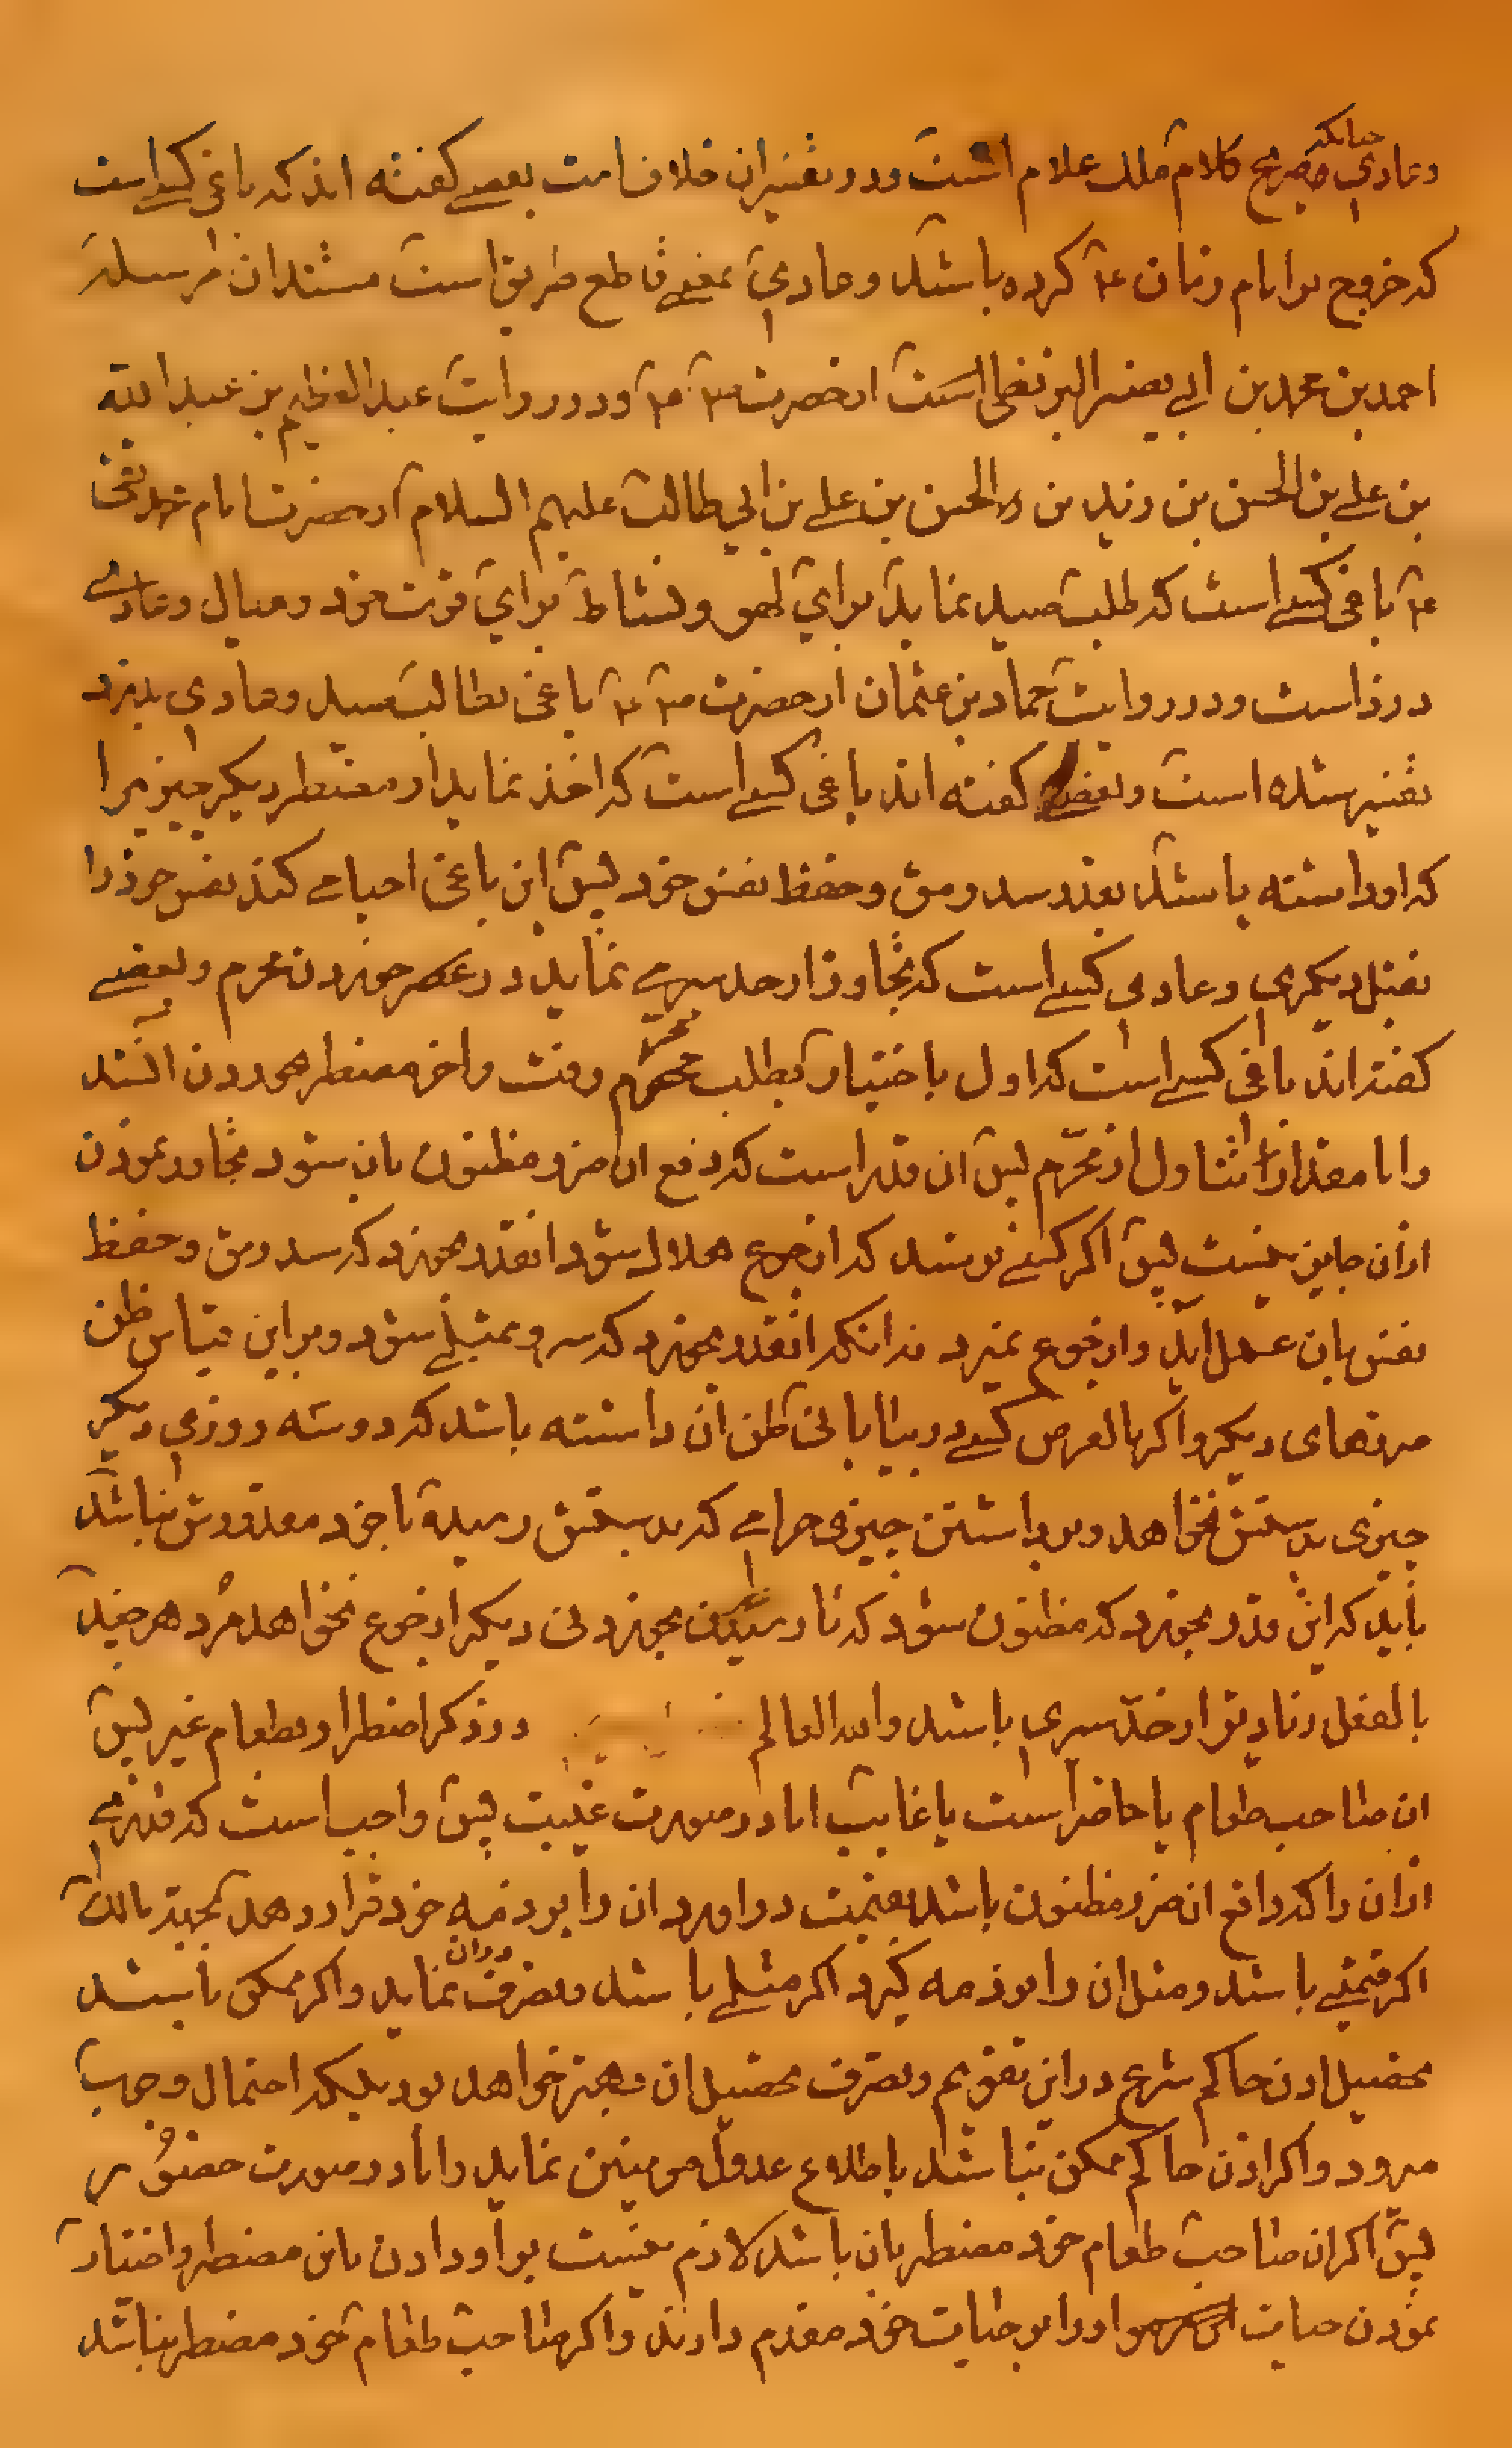 وعادی چنانکه صریح کلام ملک علام است و در تفسیر ان خلافست بعضے کفته اند که باغی کسے است
که خروج بر امام زمان ع کرده باشد و عادی بمعنے قاطع طریق است مستند ان مرسله
احمد بن محمد بن ابی نصر البزنطی است از حضرت ص ع و در روایت عبد العظیم بن عبد الله
بن علے بن الحسن بن زید بن الحسن بن علے بن ابی طالب علیهم السلام از حضرت امام محمد تقی
ع باغی کسے است که طلب صید نماید برای لهو و نشاط نه برای قوت خود و عیال و عادے
دزد است و در روایت حماد بن عثمان از حضرت ص ع باغی بطالب صید و عادی بدزد
تفسیر شده است و بعضے کفته اند باغی کسے است که اخذ نماید از مضطر دیکر چیزیرا
که او داشته باشد بقدر سد رمق و حفظ نفس خود پس این باغی احیا مے کند نفس خود را
بقتل دیکری و عادی کسے است که تجاوز از حد سیرے نماید در خوردن محرم و بعضے
کفته اند باغی کسے است که اول باختیار بطلب محرم رفت و اخر مضطر بخوردن ان شد
و اما مقدار تناول از محرّم پس ان قدر است که دفع ان ضرر مظنون بان شود تجاوز نمودن
از ان جایز نیست پس اکر کسے ترسد که از جوع هلاک شود انقدر بخورد که سد رمق و حفظ
نفس بان عمل اید و از جوع نمیرد نه انکه انقدر بخورد که سیر و ممتلے شود و بر این قیاس ظن
ضررهای دیکر و اکر بالفرض کسے در بیابانی ظن ان داشته باشد که دو سه روزی دیکر
چیزی بدستش نخواهد و برداشتن چیزی حرامے که بدستش رسیده با خود مقدورش نباشد
باید که این قدر بخورد که مظنون شود که تا رسیدن بخوردنی دیکر از جوع نخواهد مُرد هر چند
بالفعل زیادتر از حدّ سیری باشد والله العالم در ذکر اضطرار بطعام غیر پس
ان صاحب طعام یا حاضر است یا غایب اما در صورت غیبت پس واجب است که قدرے
از ان را که دافع ان ضرر مظنون باشد بقیمت در اورد ان را بر ذمه خود قرار دهد بجهة مالک
اکر قیمتے باشد و مثل ان را بر ذمه کیرد اکر مثلے باشد و تصرف دران نماید و اکر ممکن باشد
تحصیل اذن حاکم شرع در این تقویم و تصرف تحصیل ان بهتر خواهد بود بلکه احتمال وجوب
میرود و اکر اذن حاکم ممکن نباشد باطلاع عدول مومنین نماید و اما در صورت حضور
پس اکر ان صاحب طعام خود مضطر بان باشد لازم نیست بر او دادن باین مضطر و اختیار
نمودن حیات او را بر حیات خود مقدم دارند و اکر صاحب طعام خود مضطر نباشد